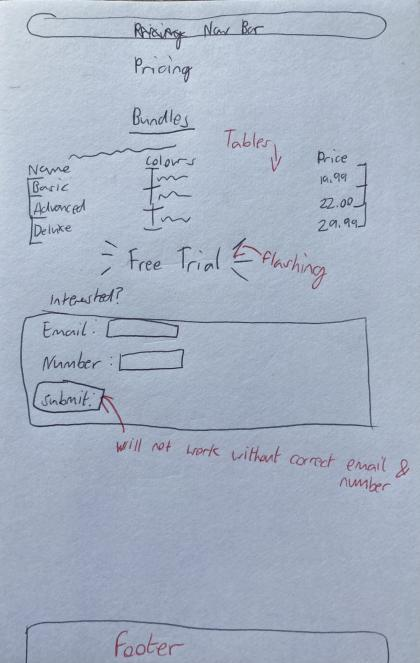 Nav Bar
Pricing
Bundles
Tables
Name Colours Price
Basic 19.99
Advanced 22.00
Deluxe 29.99
Free Trial
flashing
Interested?
Email:
Number:
Submit:
will not work without correct email &
number
Footer